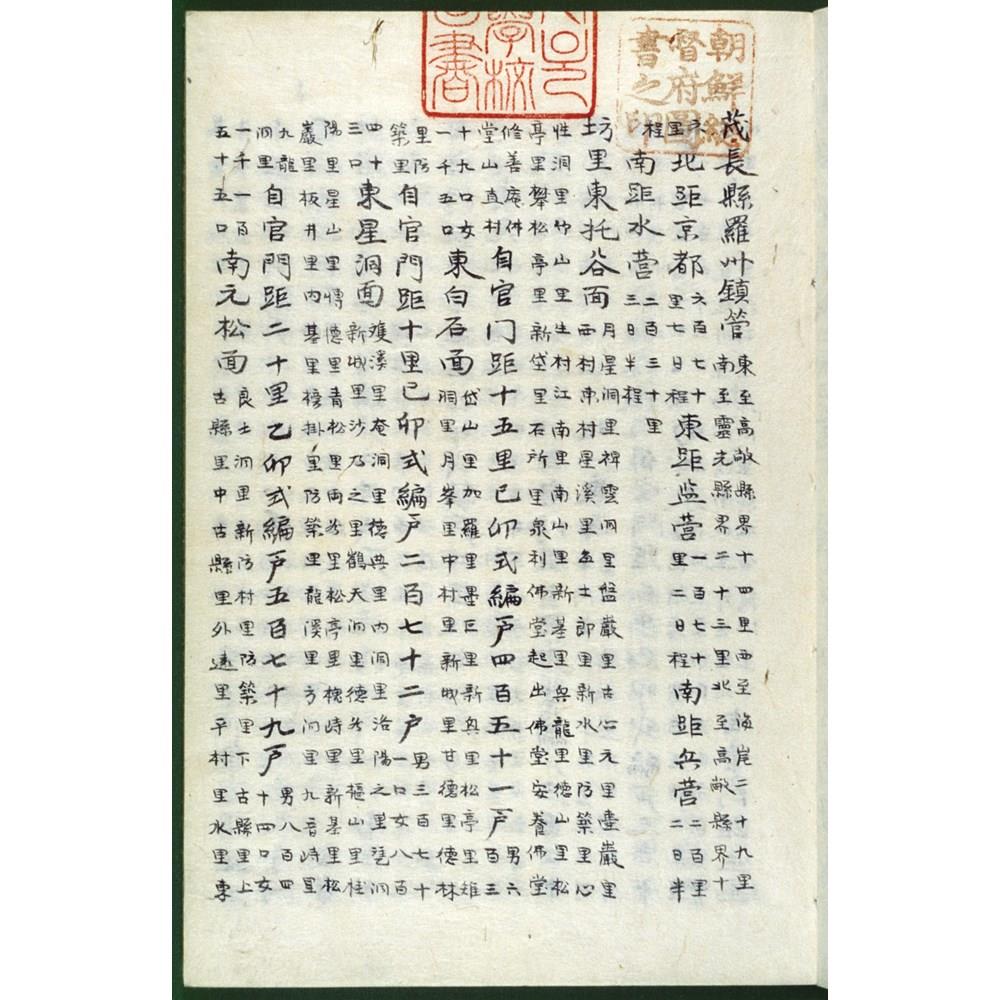 茂長縣羅州鎮管東至高敞縣界十四里西至海岸二十九里南至靈光縣界二十三里北至高敞縣界十
六里北距京都六百七十里七日程東距監营一百七十里二日程南距兵营二百里二日半
程南距水营二百三十里三日半程
坊里東托谷面月星洞里禅雲洞里盤巖里古心元里壺巖里西村東村星溪里每士郎里新水里防築里心
性洞里竹山里生村江南里南山里新基里兵龍里德山里松亭里攀松亭里新岱里石所里泉利佛堂起出佛堂安養佛堂
修善庵件堂山直村自官门距十五里己卯式編戸四百五十一戸男六百三
十九口女一千五口東白石面岱山里加羅里墨巨里新興里松亭里雉洞里月峯里中村里新城里甘德里德林
里防築里自官門距十里己卯式編戸二百七十二戸男三百七十一口女八百
四十三口東星洞面雙溪里庵洞里德興里內洞里洛陽之里洞新城里沙乃之里鶴天洞里德谷里樞山里桂
陽里星山里博德里青松里兩谷里松亭里槐峙里新基里松巖里板井里內基里榜掛里防築里龍溪里方河里九音峙里
九龍洞里自官門距二十里乙卯式編戸五百七十九戸男八百四十四口女
一千一百五十五口南元松面良士洞里新防村里防築里下古縣里上古縣里中古縣里外遠里平村里水里東
朝鮮總督府圖書之印